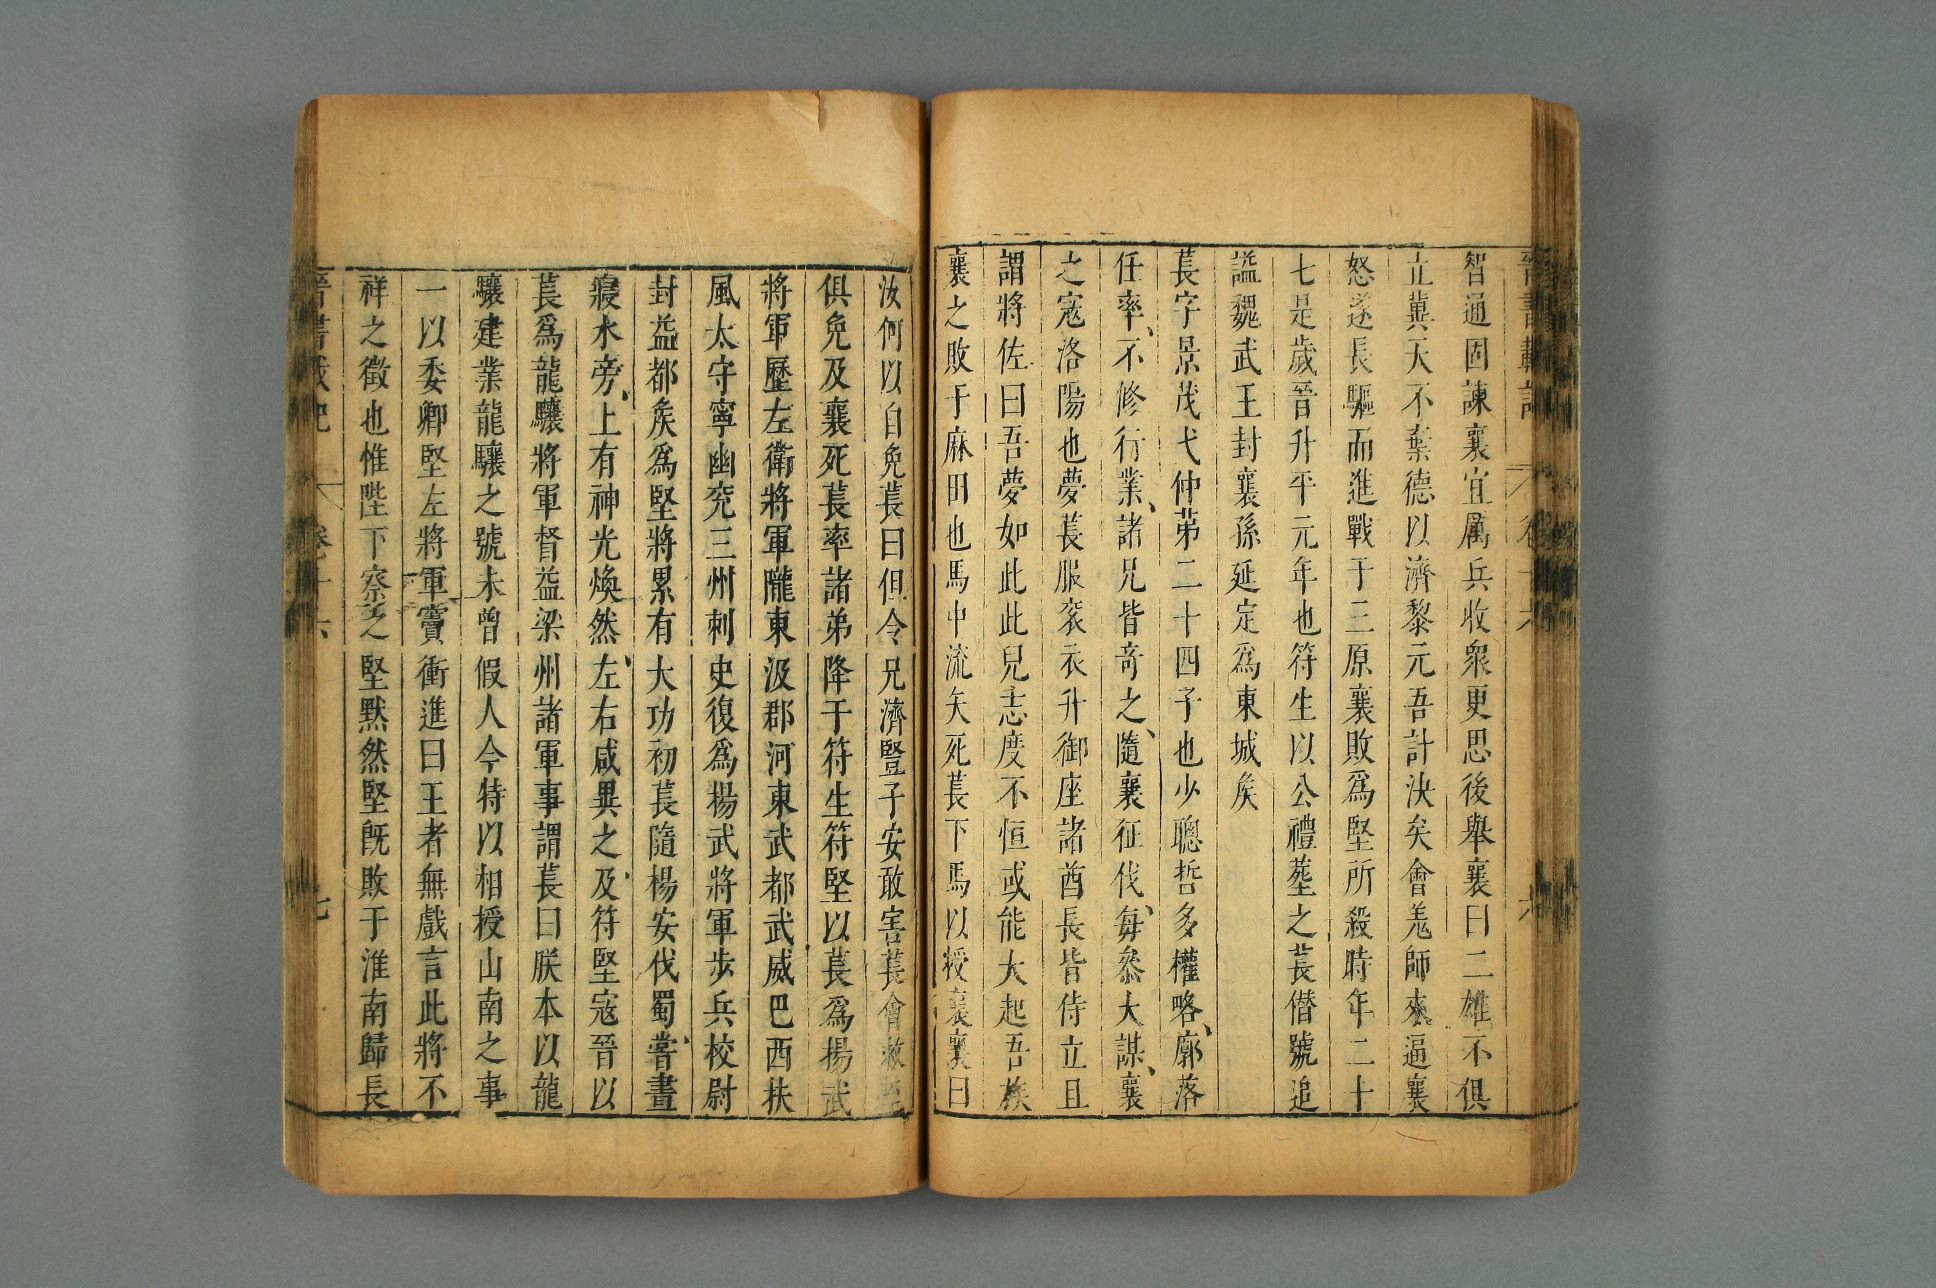 晉書載記 卷十六 六
智通固諫襄宜厲兵收衆更思後舉襄曰二雄不俱
立冀天不棄德以濟黎元吾計決矣會羌師來逼襄
怒遂長驅而進戰于三原襄敗爲堅所殺時年二十
七是歲晉升平元年也符生以公禮葬之萇僣號追
謚魏武王封襄孫延定爲東城矦
萇字景茂弋仲第二十四子也少聰哲多權略廓落
任率不修行業諸兄皆奇之隨襄征伐每叅大謀襄
之寇洛陽也夢萇服衮衣升御座諸酋長皆侍立且
謂將佐曰吾夢如此此兒志度不恒或能大起吾族
襄之敗于麻田也馬中流矢死萇下馬以授襄襄曰
汝何以自免萇曰但令兄濟豎子安敢害萇會救至
俱免及襄死萇率諸弟降于符生符堅以萇爲揚武
將軍歷左衛將軍隴東汲郡河東武都武威巴西扶
風太守寧幽兖三州刺史復爲揚武將軍步兵校尉
封益都矦爲堅將累有大功初萇隨楊安伐蜀嘗晝
寢水旁上有神光煥然左右咸異之及符堅寇晉以
萇爲龍驤將軍督益梁州諸軍事謂萇曰朕本以龍
驤建業龍驤之號未曾假人今特以相授山南之事
一以委卿堅左將軍竇衝進曰王者無戲言此將不
祥之徵也惟陛下察之堅默然堅旣敗于淮南歸長
晉書載記 卷十六 七